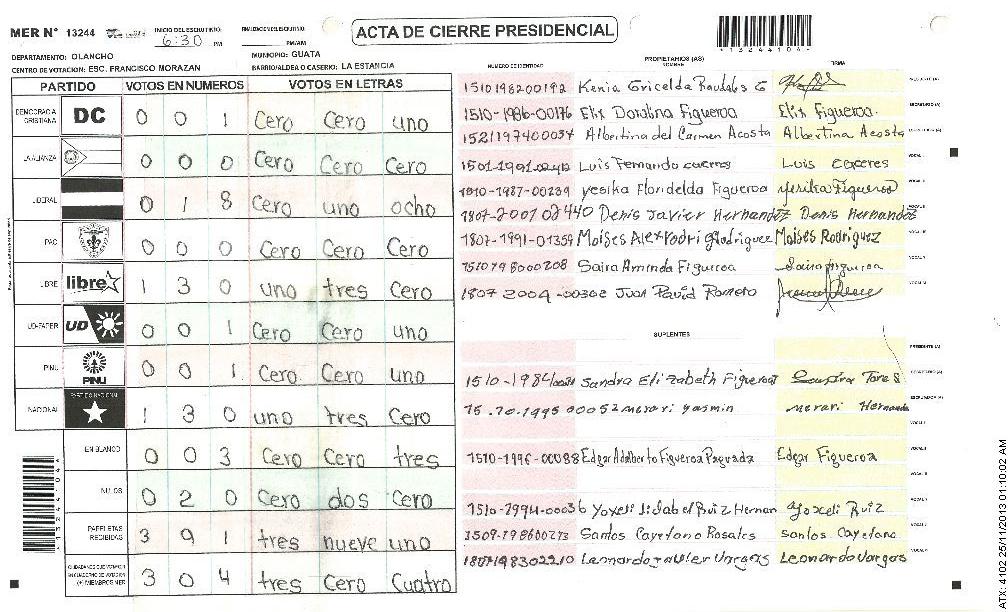 MER N° 13244 INICIO DEL ESCRUTINIO: 6:30 PM FINALIZACION DEL ESCRUTINIO: PM/AM
ACTA DE CIERRE PRESIDENCIAL
13244104
DEPARTAMENTO: OLANCHO MUNICIPIO: GUATA
CENTRO DE VOTACION: ESC. FRANCISCO MORAZAN BARRIO/ALDEA O CASERIO: LA ESTANCIA
PARTIDO VOTOS EN NUMEROS VOTOS EN LETRAS
DEMOCRACIA CRISTIANA DC 0 0 1 Cero Cero uno
LA ALIANZA 0 0 0 Cero Cero Cero
LIBERAL 0 1 8 Cero uno ocho
PAC 0 0 0 Cero Cero Cero
LIBRE libre 1 3 0 uno tres Cero
UD-FAPER UD 0 0 1 Cero Cero uno
PINU PINU 0 0 1 Cero Cero uno
NACIONAL PARTIDO NACIONAL 1 3 0 uno tres Cero
EN BLANCO 0 0 3 Cero Cero tres
NULOS 0 2 0 Cero dos Cero
PAPELETAS RECIBIDAS 3 9 1 tres nueve uno
CIUDADANOS QUE VOTARON EN CUADERNO DE VOTACION (+) MIEMBROS MER 3 0 4 tres Cero Cuatro
PROPIETARIOS (AS)
NUMERO DE IDENTIDAD NOMBRE FIRMA
1510198200192 Kenia Gricelda Raudales G
1510-1986-00176 Elix Doralina Figueroa Elix Figueroa
1521197400034 Albertina del Carmen Acosta Albertina Acosta
Luis Fernando caceres Luis caceres
1510-1987-00239 yesika Floridelda Figueroa yesika Figueroa
1807-2001 02440 Denis Javier Hernandez Denis Hernandez
1807-1991-01359 Moises Rodriguez
1510198000208 Saira Aminda Figueroa Saira figueroa
1807 2004-00302 Juan David Romero
SUPLENTES
Sandra Elizabeth Figueroa
merari yasmin merari Hernande
1510-1996-00088 Edgar Adalberto Figueroa Edgar Figueroa
1510-1994-00036 Yoxeli Ruiz
1509-198600273 Santos Cayetano Rosales santos Cayetano
1807198302210 Leonardo Javier Vargas Leonardo Vargas
ATX: 4102 25/11/2013 01:10:02 AM